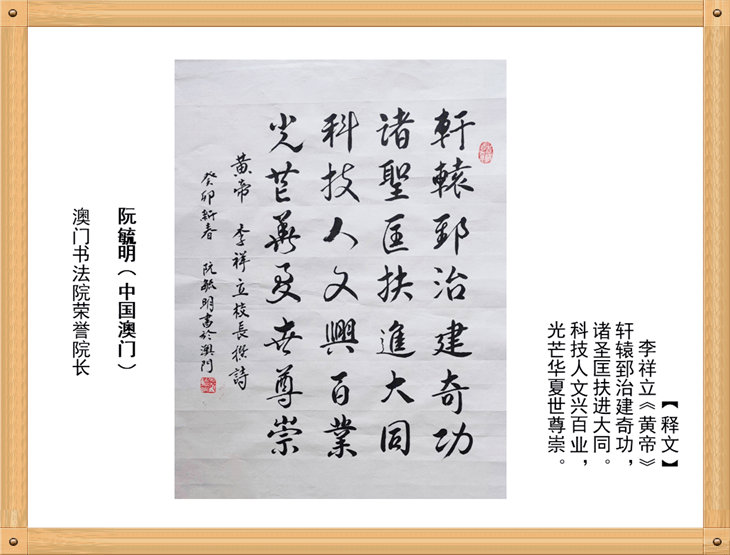 【释文】
李祥立《黄帝》
轩辕郅治建奇功，
诸圣匡扶进大同。
科技人文兴百业，
光芒华夏世尊崇。
軒轅郅治建奇功
諸聖匡扶進大同
科技人文興百業
光芒華夏世尊崇
黃帝 李祥立校長撰詩
癸卯新春 阮毓明書於澳門
阮毓明（中国澳门）
澳门书法院荣誉院长